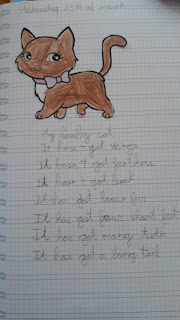 Wednesday 25th of March
My lovely cat
It hasn't got wings
It hasn't got feathers
It hasn't got beak
It has got brown fur
It has got four short feet
It has got many teeth
It has got a long tail